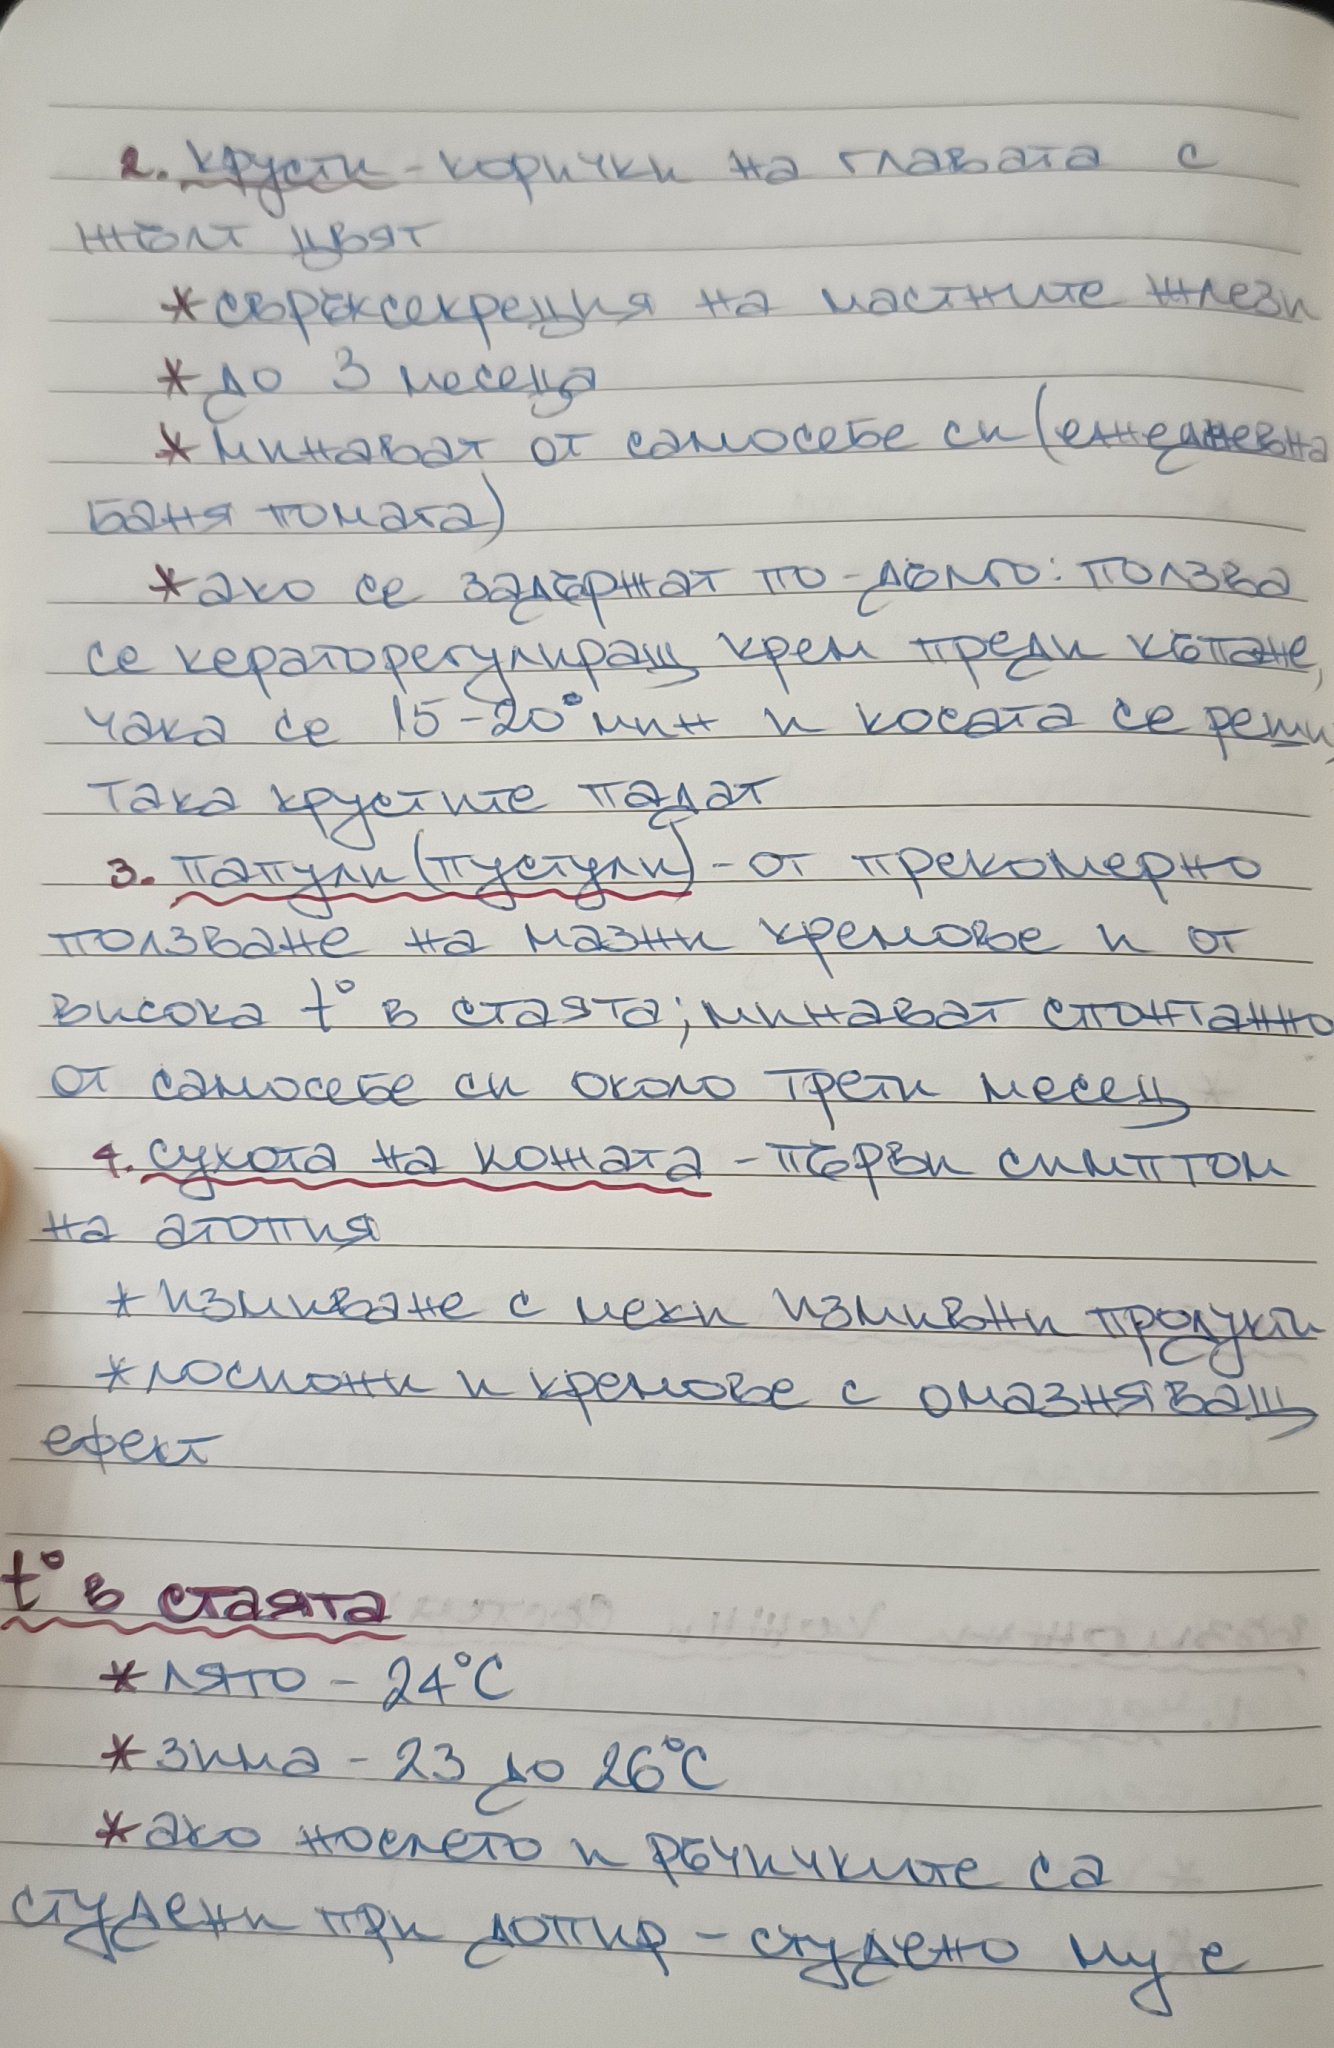 2. крусти - корички на главата с
жълт цвят
* свръхсекреция на мастните жлези
* до 3 месеца
* минават от самосебе си (ежедневна
баня помага)
* ако се задържат по-дълго: ползва
се кераторегулиращ крем преди къпане,
чака се 15-20 мин и косата се реши,
така крустите падат
3. папули (пустули) - от прекомерно
ползване на мазни кремове и от
висока t° в стаята; минават спонтанно
от самосебе си около трети месец
4. сухота на кожата - първи симптом
на атопия
* измиване с меки измивни продукти
* лосиони и кремове с омазняващ
ефект
t° в стаята
* лято - 24°C
* зима - 23 до 26°C
* ако нослето и ръчичките са
студени при допир - студено му е